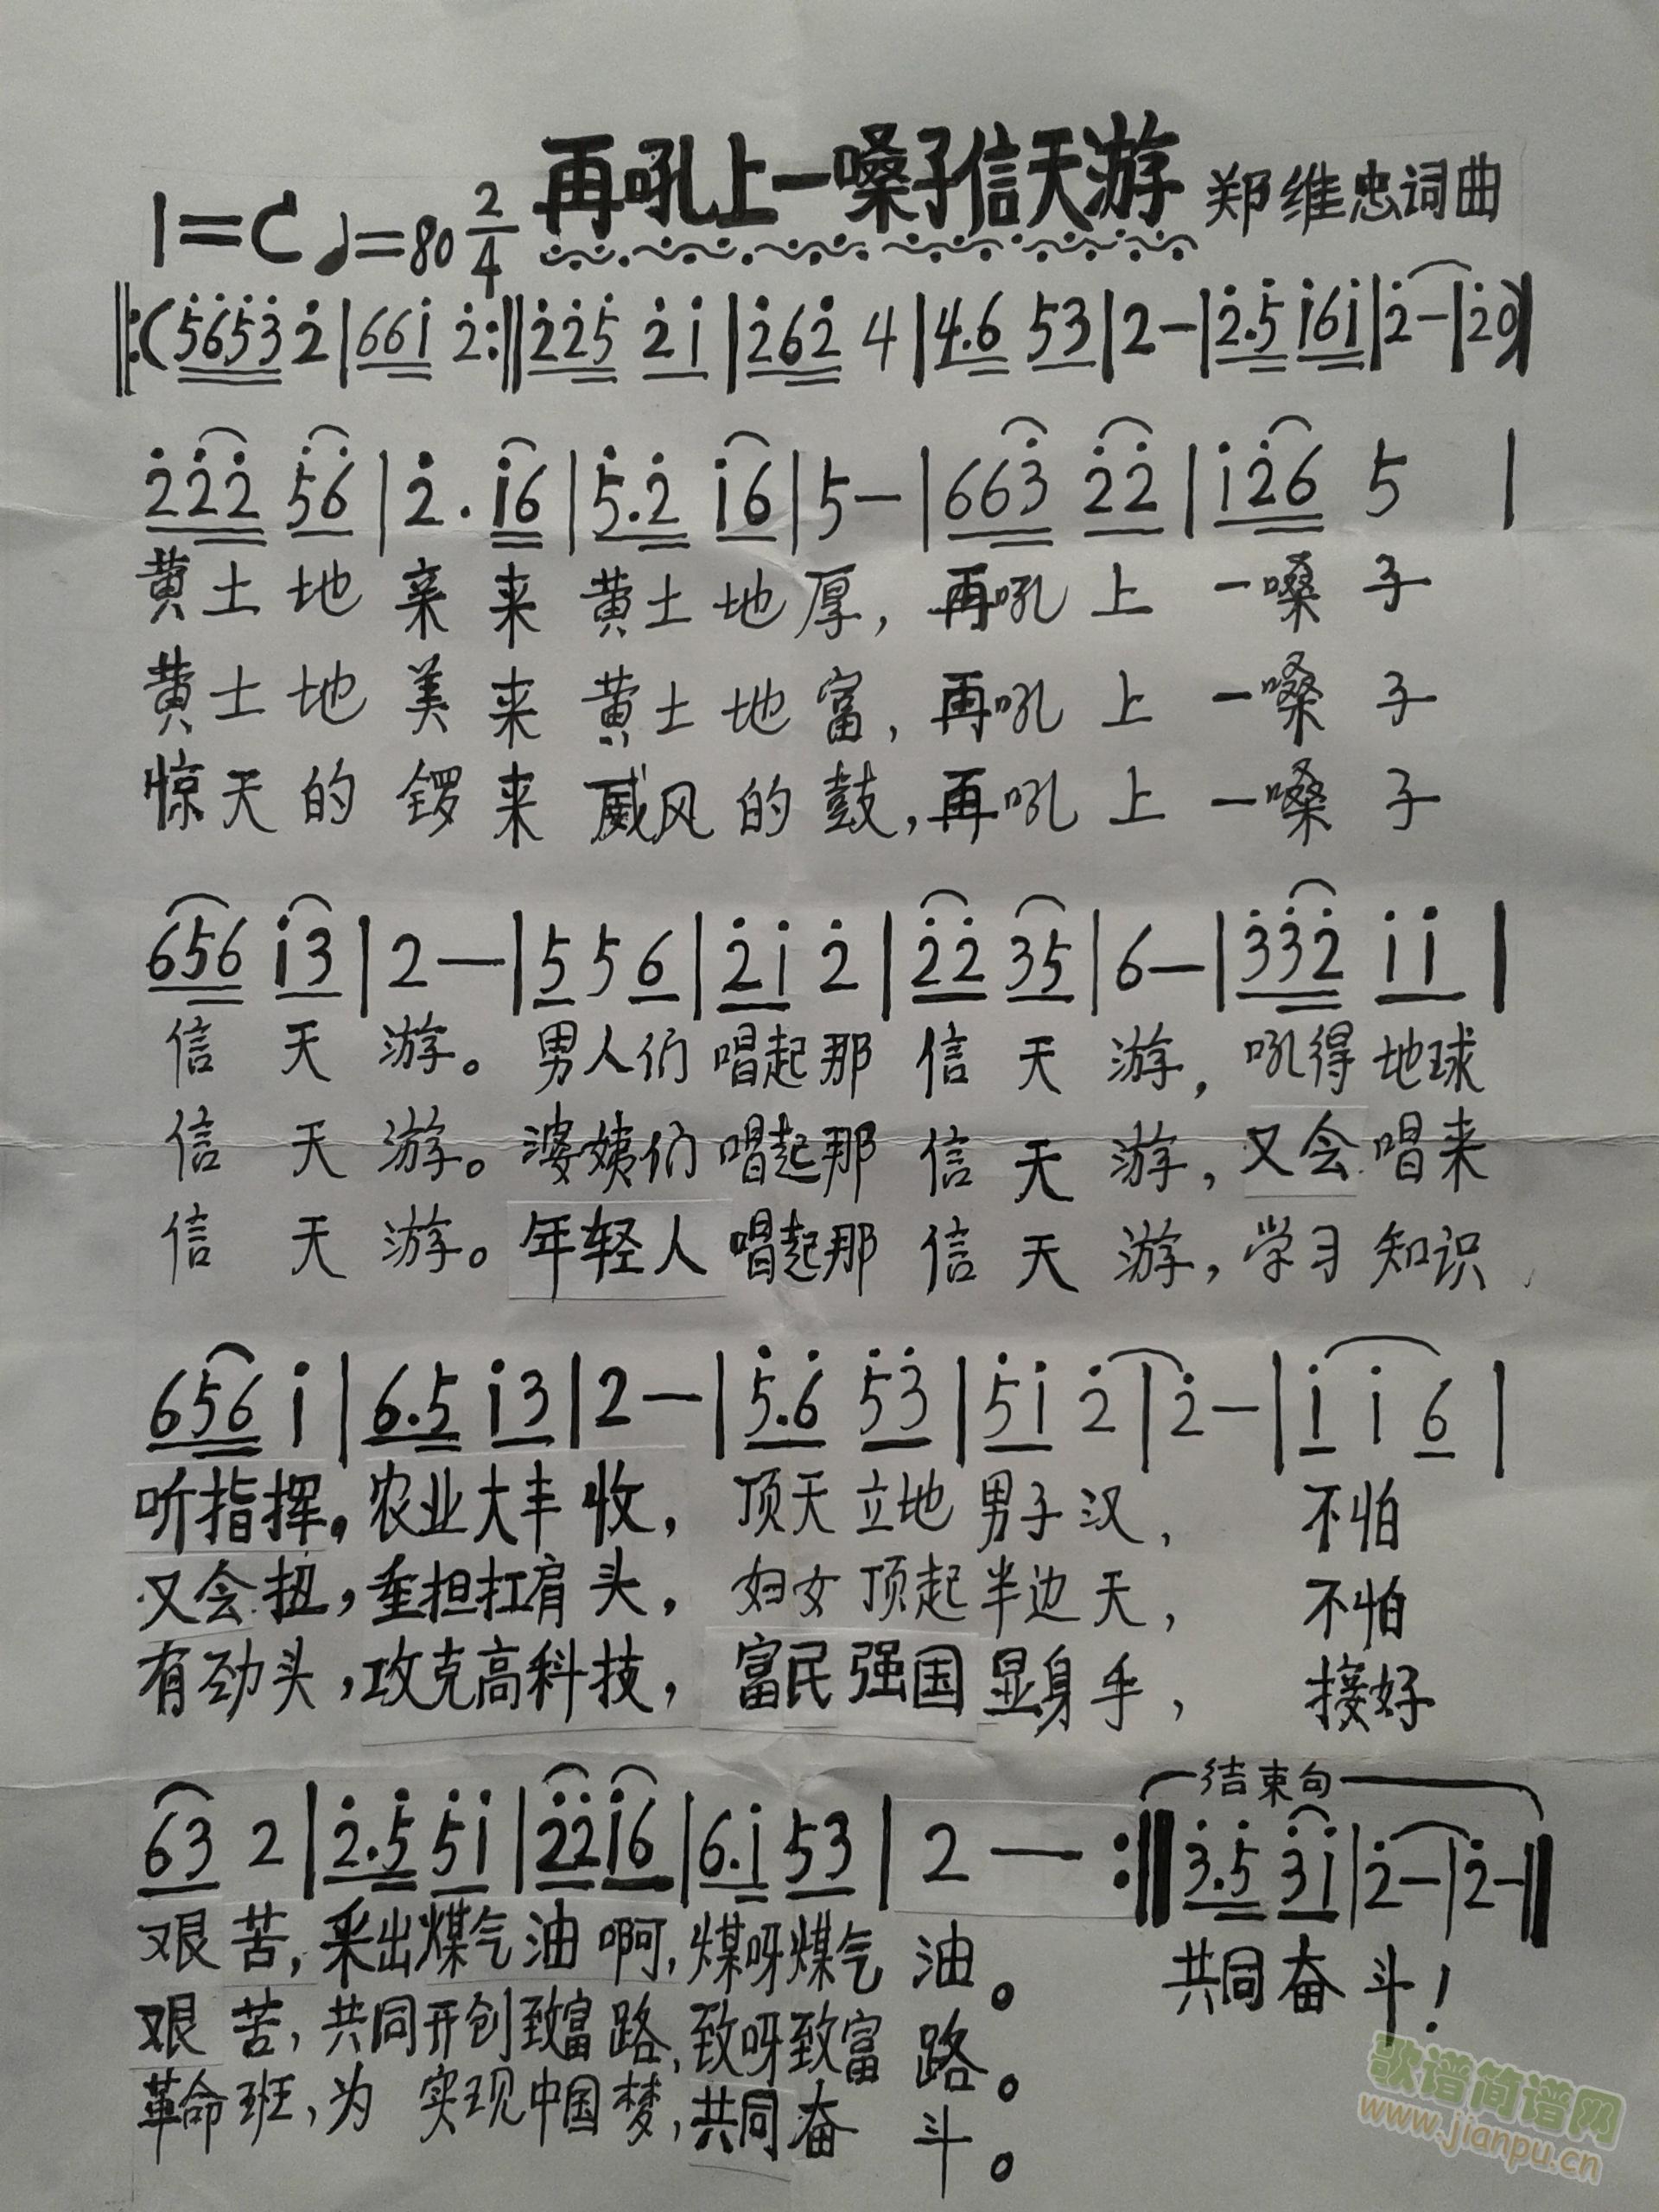 再吼上一嗓子信天游 郑维忠词曲
1=C ♩=80 2/4
‖:(5̇6̇5̇3̇ 2̇|661̇ 2̇:‖2̇2̇5̇ 2̇1̇|2̇62̇ 4|4.6 53|2-|2̇.5̇ 1̇61̇|2̇-|2̇0)|
2̇2̇2̇ 5̇6̇|2̇. 1̇6|5̇.2̇ 1̇6|5-|663̇ 2̇2̇|1̇2̇6 5|
黄土地亲来黄土地厚,再吼上一嗓子
黄土地美来黄土地富,再吼上一嗓子
惊天的锣来威风的鼓,再吼上一嗓子
656 1̇3|2-|5 5 6|2̇1̇ 2̇|2̇2̇ 35|6-|3̇3̇2̇ 1̇1̇|
信天游。男人们唱起那信天游,吼得地球
信天游。婆姨们唱起那信天游,又会唱来
信天游。年轻人唱起那信天游,学习知识
656 1̇|6.5 1̇3|2-|5̇.6̇ 5̇3̇|5̇1̇ 2̇|2̇-|1̇ 1̇ 6|
听指挥。农业大丰收,顶天立地男子汉,不怕
又会扭,重担扛肩头,妇女顶起半边天,不怕
有劲头,攻克高科技,富民强国显身手,接好
63 2|2̇.5̇ 5̇1̇|2̇2̇1̇6|6.1̇ 53|2-:‖3̇.5̇ 3̇1̇|2̇-|2̇-‖
结束句
艰苦,采出煤气油啊,煤呀煤气油。 共同奋斗!
艰苦,共同开创致富路,致呀致富路。
革命班,为实现中国梦,共同奋斗。
歌谱简谱网
www.jianpu.cn